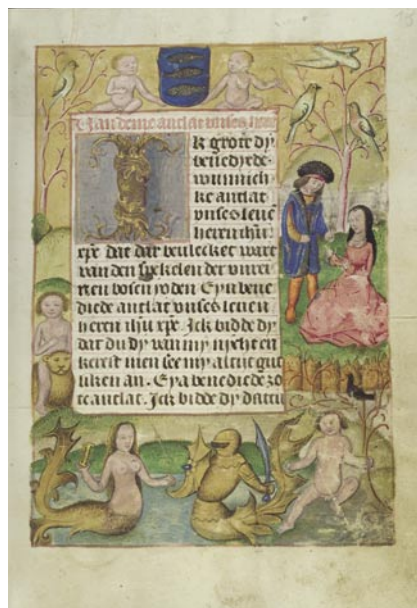 Van deme antlat unses heren
Ik grote dy
benedyede
wunnich
ke antlat
unses leve
heren ihu
xpe dat dar bevlecket wart
van den spekelen der unrei
nen bosen yoden Eya bene
diede antlat unses leven
heren ihu xpe. Ick bidde dy
dat du dy van my nycht en
kerest men see my altyt gut
liken an. Eya benediede zo
te antlat. Ick bidde dy dattu